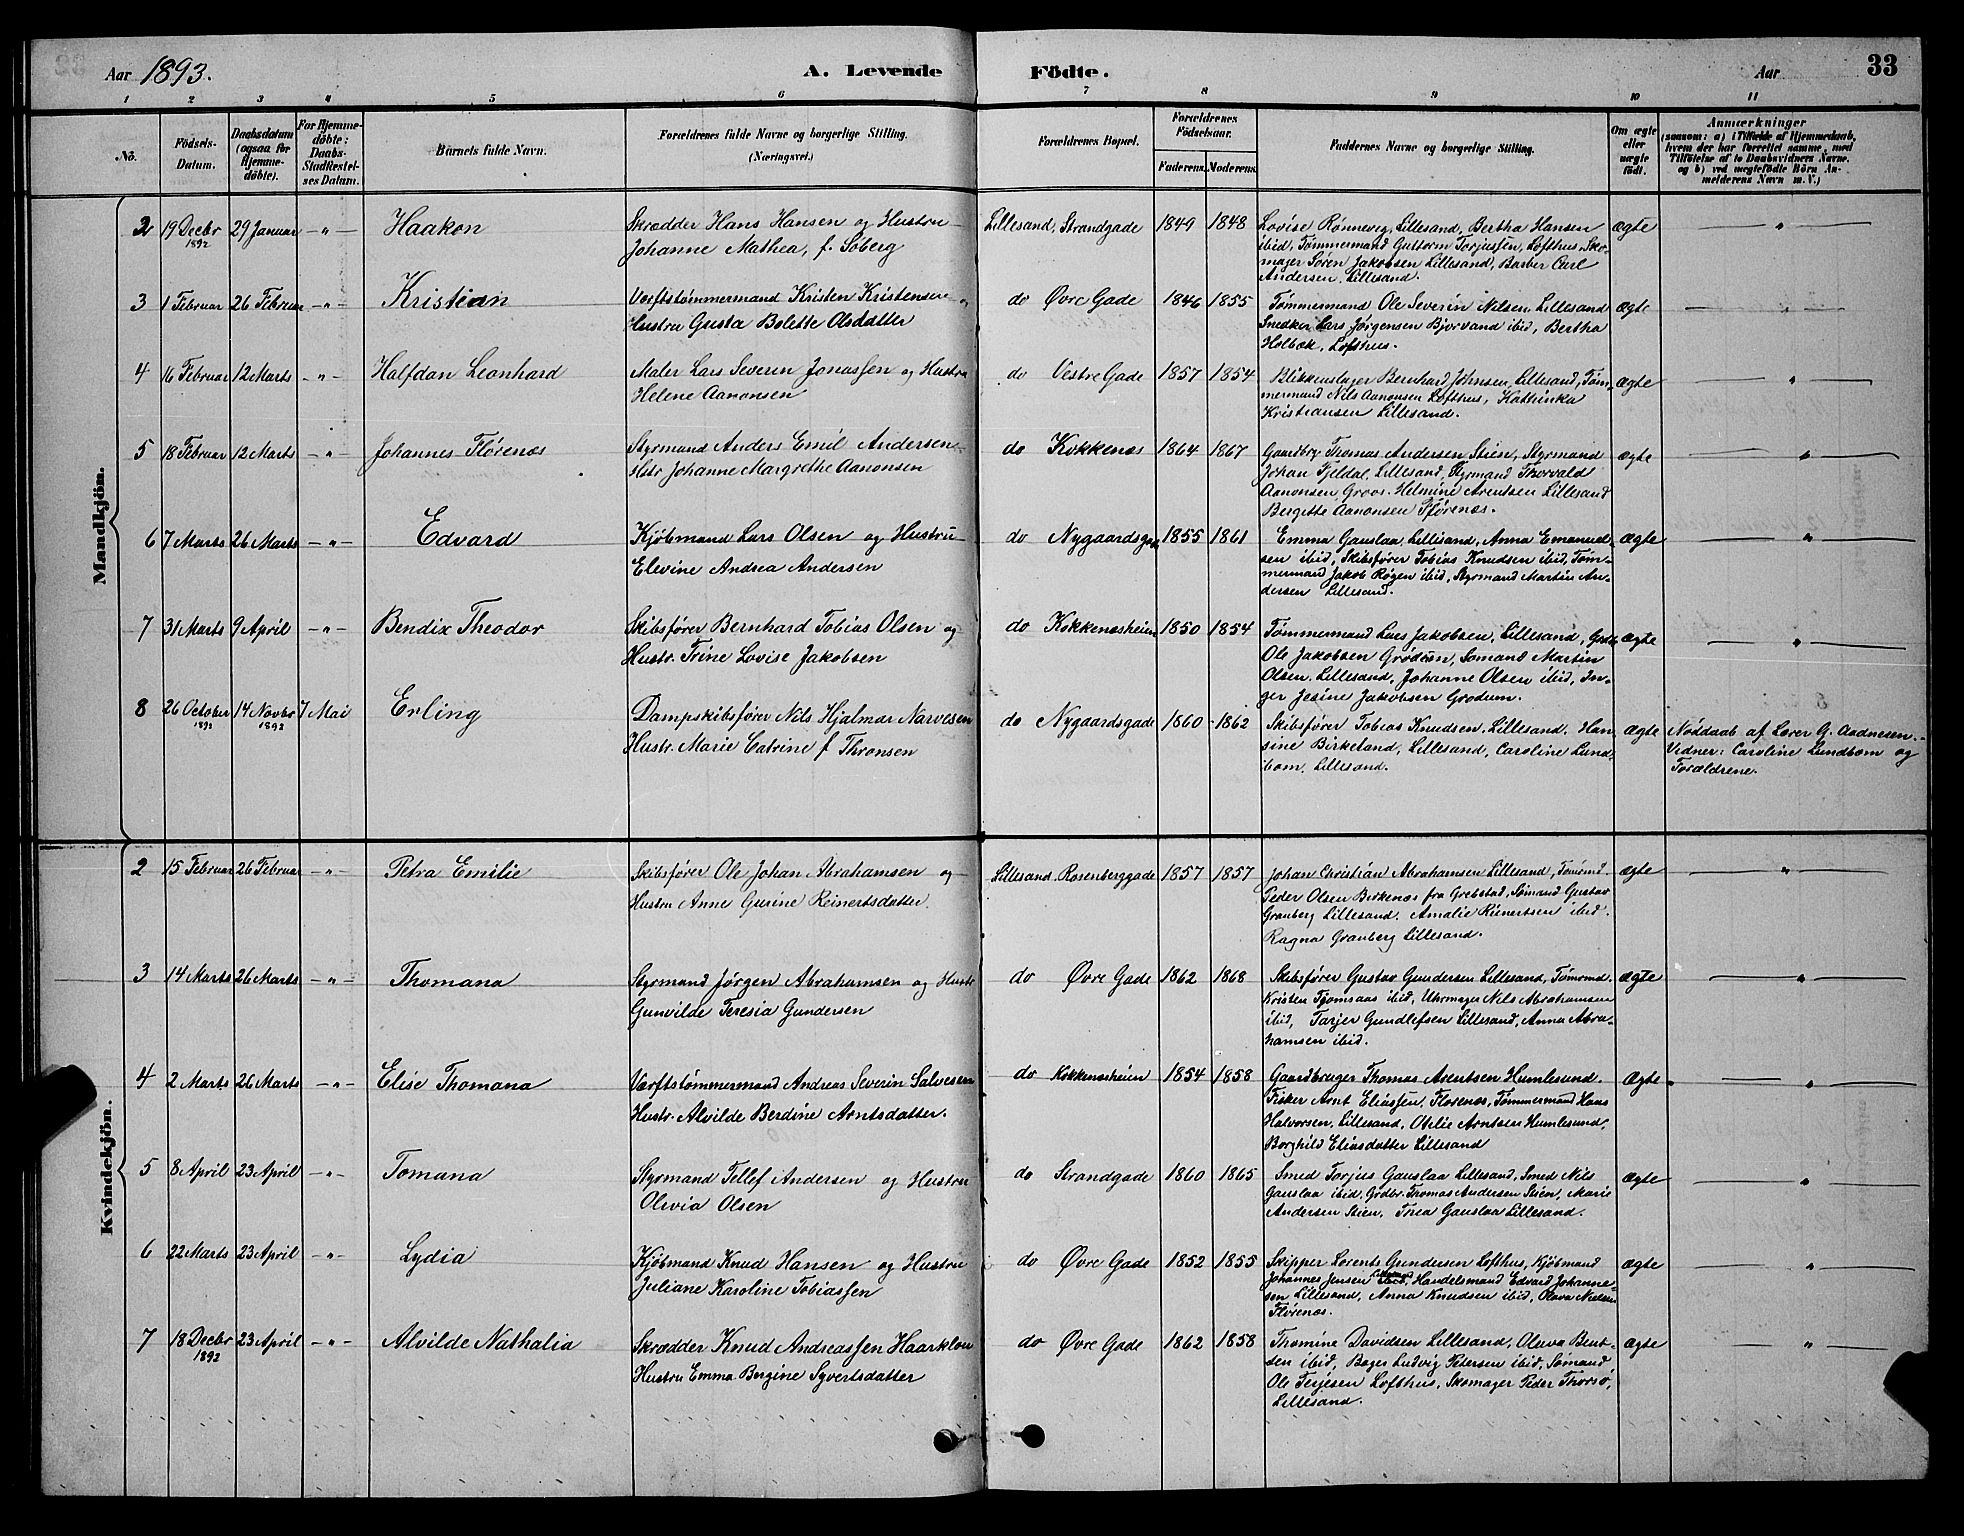 Aar 1893.
A. Levende Födte.
Aar
33
1 2 3 4 5 6 7 8 9 10 11
No.
Födsels-Datum.
Daabsdatum (ogsaa for Hjemmedöbte).
For Hjemmedöbte: Daabs-Stadfæstelses Datum.
Barnets fulde Navn.
Forældrenes fulde Navne og borgerlige Stilling. (Næringsvei.)
Forældrenes Bopæl.
Forældrenes Födselsaar.
Faderens. Moderens.
Faddernes Navne og borgerlige Stilling.
Om ægte eller uægte födt.
Anmærkninger
(saasom: a) i Tilfælde af Hjemmedaab, hvem der har forrettet samme, med Tilföielse af to Daabsvidners Navne. og b) ved uegtefödte Börn Anmelderens Navn m. V.)
Mandkjön.
2 19 Decbr 1892 29 Januar -„- Haakon
Skrædder Hans Hansen og Hustru
Johanne Mathea, f. Søberg
Lillesand, Strandgade 1849 1848
Lovise Rønnevig, Lillesand, Bertha Hansen
ibid, Tømmermand Guttorm Torjussen, Lofthus, Sko-
mager Søren Jakobsen Lillesand, Barber Carl
Andersen, Lillesand.
Ægte „
3 1 Februar 26 Februar -„- Kristian
Værftstømmermand Kristen Kristensen og
Hustru Gusta Bolette Olsdatter
do Øvre Gade 1846 1855
Tømmermand Ole Severin Nilsen, Lillesand
Snedker Lars Jørgensen Bjorvand ibid, Bertha
Holbæk, Lofthus.
Ægte „
4 16 Februar 12 Marts -„- Halfdan Leonhard
Maler Lars Severin Jonassen og Hustru
Helene Aanonsen
do Vestre Gade 1857 1854
Blikkenslager Bernhard Johnsen, Lillesand, Tøm-
mermand Nils Aanonsen Lofthus, Kathinka
Kristiansen Lillesand.
Ægte „
5 18 Februar 12 Marts -„- Johannes Flørenæs
Styrmand Anders Emil Andersen
Hstr Johanne Margrethe Aanonsen
do Kokkenæs 1864 1867
Gaardbrg Thomas Andersen Stien, Styrmand
Johan Fjeldal, Lillesand, Styrmand Thorvald
Aanonsen Groos. Helmine Arentsen Lillesand
Bergitte Aanonsen Flørenæs.
Ægte „
6 7 Marts 26 Marts -„- Edvard
Kjøbmand Lars Olsen og Hustru
Elevine Andrea Andersen
do Nygaardsgade 1855 1861
Emma Gauslaa, Lillesand, Anna Emanuel-
sen ibid, Skibsfører Tobias Knudsen ibid, Tøm-
mermand Jakob Røgen ibid, Styrmand Martin An-
dersen Lillesand.
Ægte „
7 31 Marts 9 April -„- Bendix Theodor
Skibsfører Bernhard Tobias Olsen og
Hustr. Trine Lovise Jakobsen
do Kokkenæsheien 1850 1854
Tømmermand Lars Jakobsen, Lillesand, Grdb
Ole Jakobsen Grødum, Sømand Martin
Olsen, Lillesand, Johanne Olsen ibid, In-
ger Jesine Jakobsen Grødum.
Ægte „
8 26 October 1892 14 Novbr 1892 7 Mai Erling
Dampskibsfører Nils Hjalmar Narvesen
Hustr. Marie Catrine f Thronsen
do Nygaardsgade 1860 1862
Skibsfører Tobias Knudsen, Lillesand. Han-
sine Birkeland, Lillesand, Caroline Lund-
bom, Lillesand.
Ægte
Nøddaab af Lærer G. Aadnesen.
Vidner: Caroline Lundbom og
Forældrene.
Kvindekjön.
2 15 Februar 26 Februar -„- Petra Emilie
Skibsfører Ole Johan Abrahamsen og
Hustru Anne Gurine Reinertsdatter.
Lillesand. Rosenberggade 1857 1857
Johan Christian Abrahamsen Lillesand, Tømrmd.
Peder Olsen Birkenæs fra Grebstad, Sømand Gustav
Granberg Lillesand. Amalie Reinertsen ibid.
Ragna Granberg Lillesand.
Ægte „
3 14 Marts 26 Marts -„- Thomana
Styrmand Jørgen Abrahamsen og Hustr
Gunvilde Teresia Gundersen
do Øvre Gade 1862 1868
Skibsfører Gustav Gundersen Lillesand, Tømrmd.
Kristen Tjomsaas ibid, Uhrmager Nils Abrahamsen
ibid, Tarjer Gundlefsen Lillesand, Anna Abra-
hamsen ibid.
Ægte „
4 2 Marts 26 Marts -„- Elise Thomana
Værftstømmermand Andreas Severin Salvesen
Hustr. Alvilde Berdine Arntsdatter.
do Kokkenæsheien 1854 1858
Gaardbruger Thomas Arentsen Humlesund.
Fisker Arnt Eliassen, Florenæs, Tømmermand Hans
Halvorsen, Lillesand, Otelie Arntsen Humlesund,
Borghild Eliasdatter Lillesand
Ægte „
5 8 April 23 April -„- Tomana
Styrmand Tellef Andersen og Hustru
Olevia Olsen
do Strandgade 1860 1865
Smed Torjus Gauslaa Lillesand, Smed Nils
Gauslaa ibid, Grdbr. Thomas Andersen Stien, Marie
Andersen Stien, Trea Gauslaa Lillesand.
Ægte „
6 22 Marts 23 April -„- Lydia
Kjøbmand Knud Hansen og Hustru
Juliane Karoline Tobiassen
do Øvre Gade 1852 1855
Skipper Lorents Gundersen Lofthus, Kjøbmand
Johannes Jensen, Handelsmand Edvard Johanne-
sen Lillesand, Anna Knudsen ibid, Olava Nielsen
Flørenæs.
Ægte „
7 18 Decbr 1892 23 April -„- Alvilde Nathalia
Skrædder Knud Andreassen Haarklou
Hustru Emma Bergine Syvertsdatter
do Øvre Gade 1862 1858
Thomine Davidsen Lillesand, Oleva Bent-
sen ibid, Bager Ludvig Petersen ibid, Sømand
Ole Terjesen Lofthus, Skomager Peder Thorsø,
Lillesand.
Ægte „